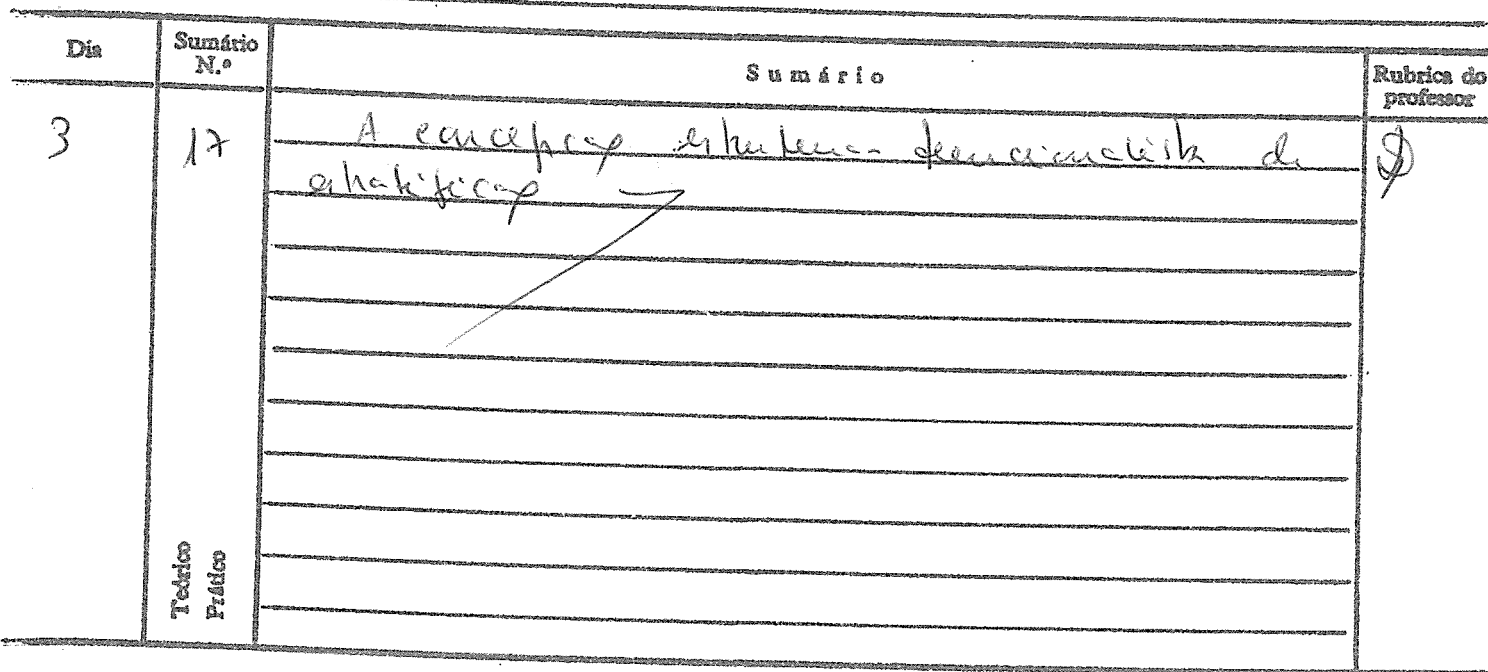 Dia
Sumário N.º
Sumário
Rubrica do professor
3
17
A concepção estruturo-funcionalista de
estratificação
Teórico
Prático